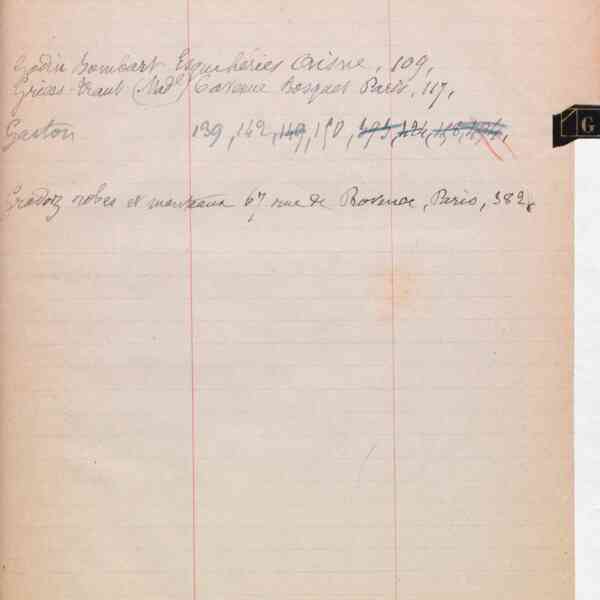 Godin Bombart Esquehéries Aisne, 109,
Gricos-Traut (Md^e) 6 avenue Bosquet Paris, 117,
Gaston 139, 142, 149, 150,
Gradoz robes et manteaux 67 rue de Provence, Paris, 382,
G